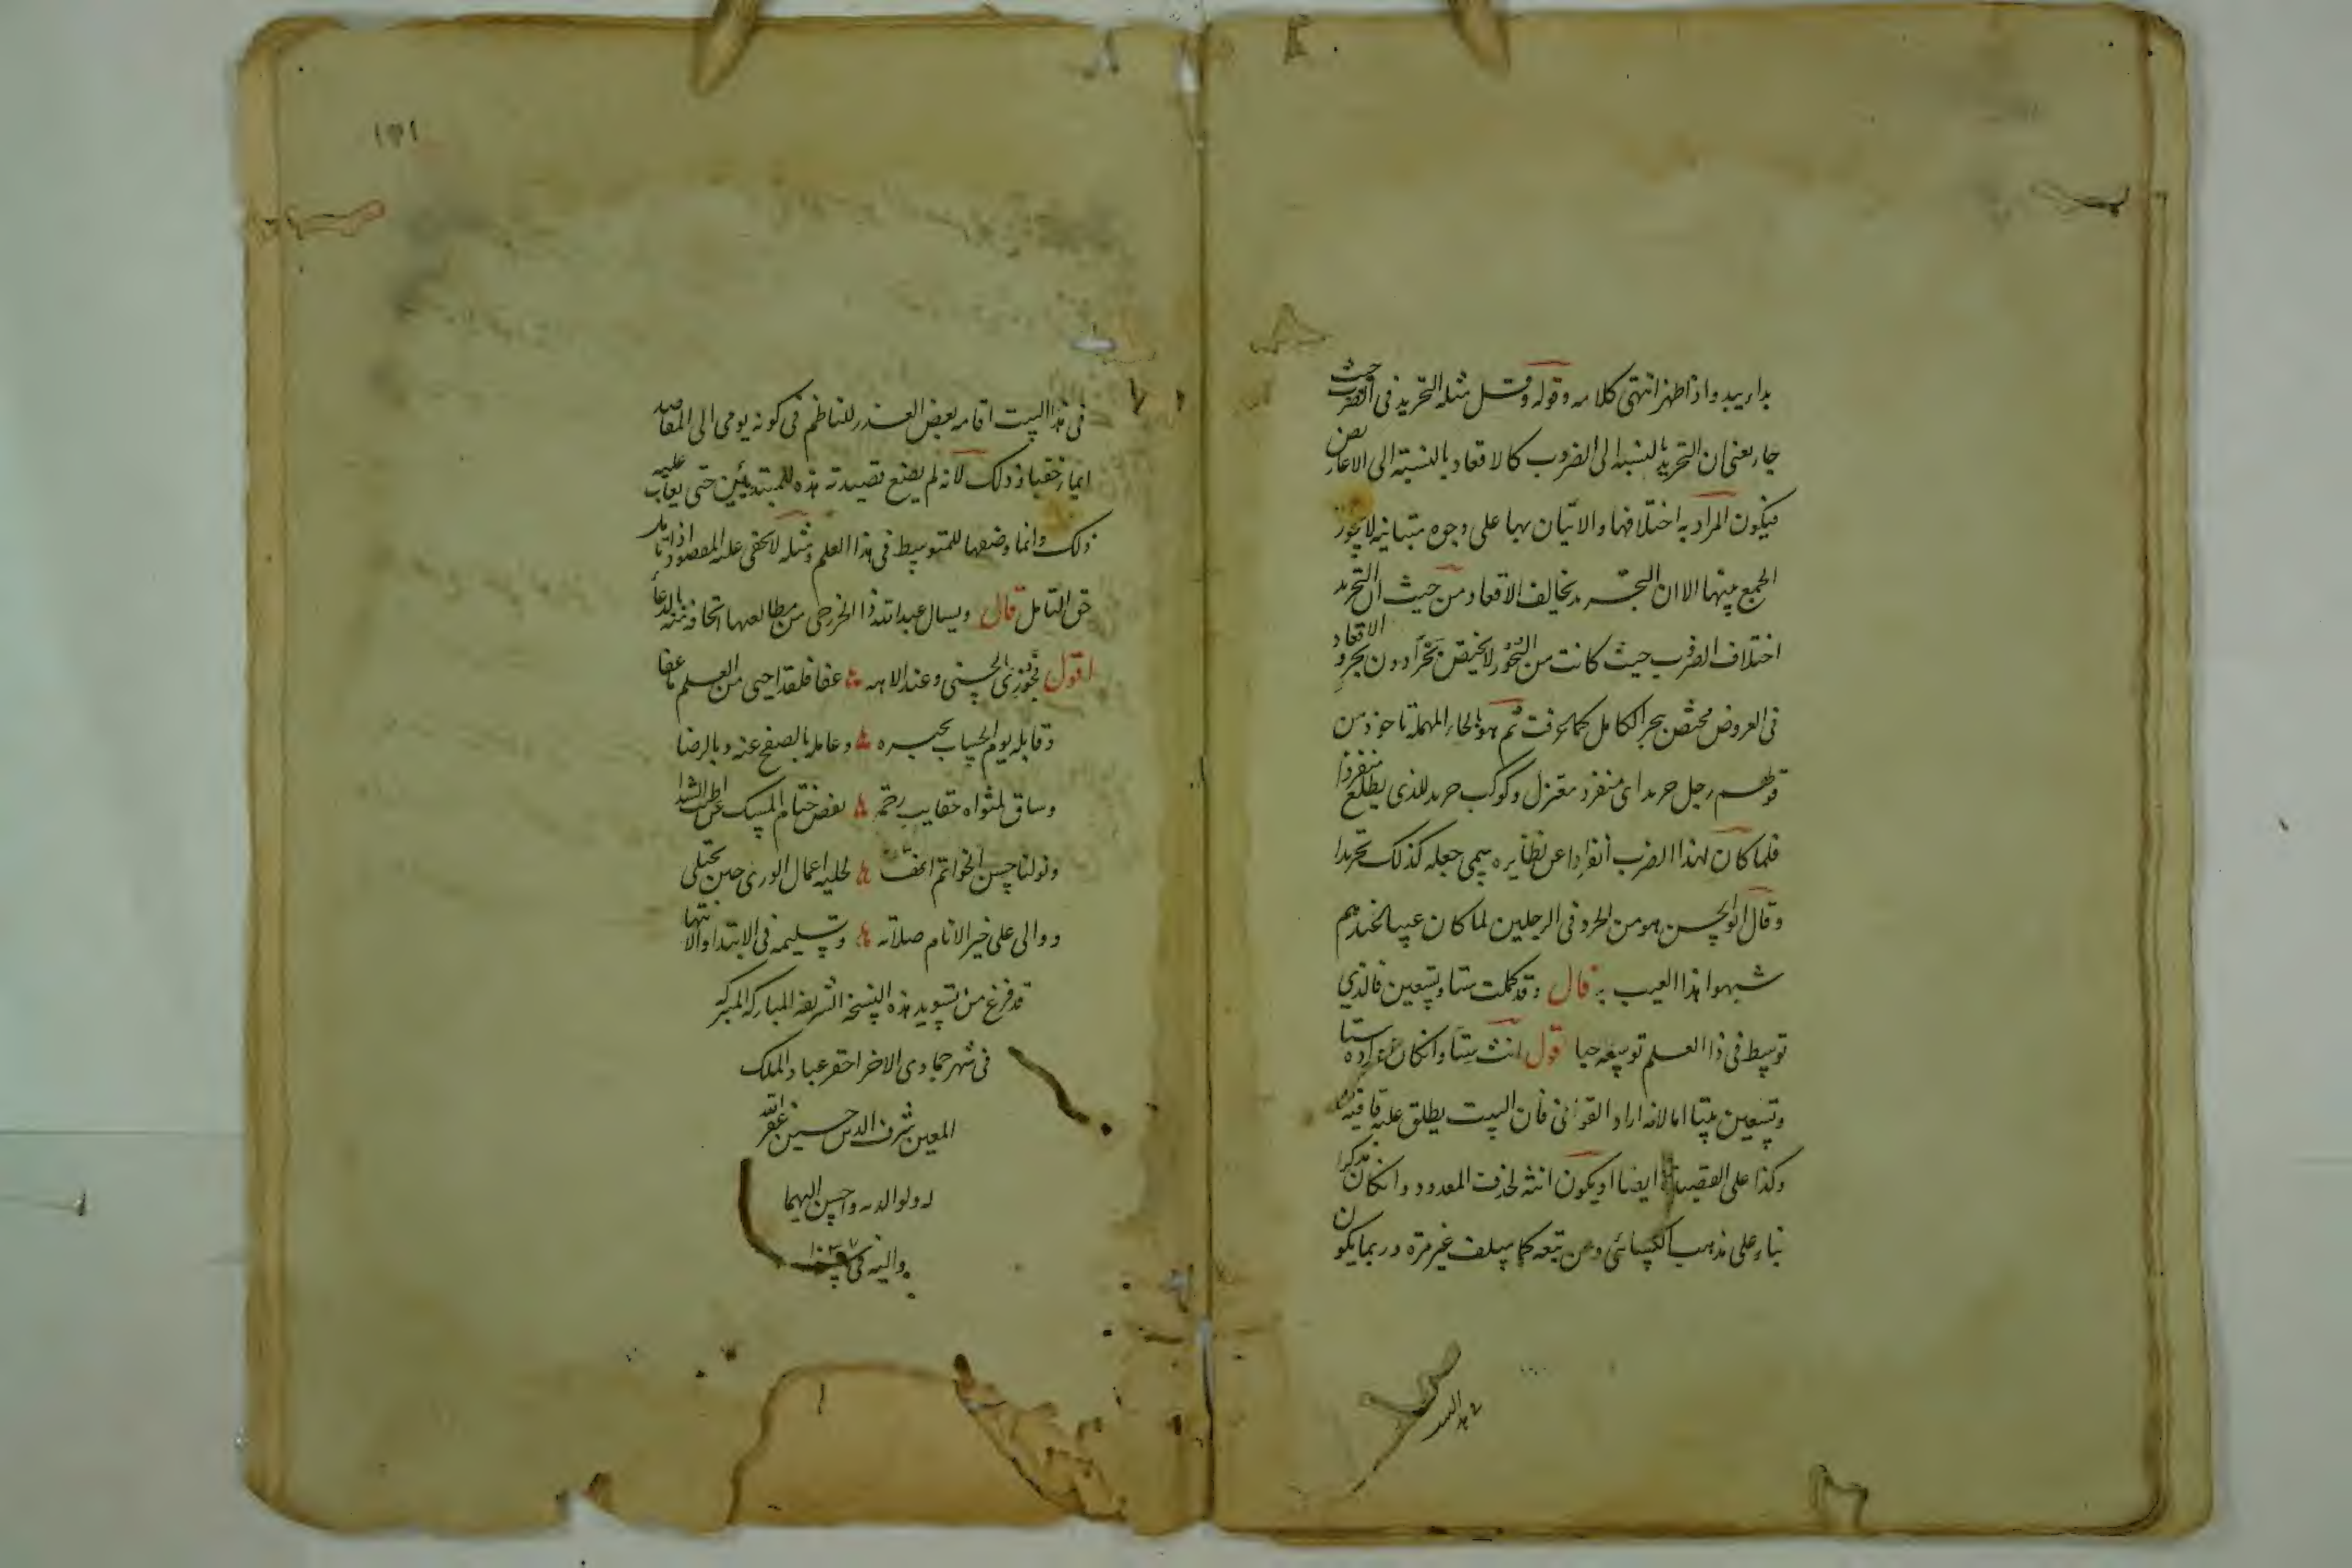 بدا يبدو اذا ظهر انتهى كلامه وقوله وقل مثله التحريد في الضرب حيث
جا يعني ان التحريد بالنسبة الى الضروب كالاقعاد بالنسبة الى الاعاريض
فيكون المراد به اختلافها والاتيان بها على وجوه متباينة لا يجوز
الجمع بينها الا ان التحريد يخالف الاقعاد من حيث ان التحريد
اختلاف الضرب حيث كانت من البحور لا يختص ببحر دون بحر والاقعاد
في العروض مختص ببحر الكامل كما عرفت ثم هو بالحاء المهملة ماخوذ من
قولهم رجل حريد اى منفرد معتزل وكوكب حريد للذي يطلع منفردا
فلما كان لهذا الضرب انفرادا عن نظايره سمى جعله كذلك تحريدا
وقال ابو الحسن هو من الحرد في الرجلين لما كان عيبا عندهم
شبهوا هذا العيب به قال وقد كملت ستا وتسعين فالذي
توسط في ذا العلم توسعه حبا اقول انث ستا وان كان مراده ستا
وتسعين بيتا اما لانه اراد القوافي فان البيت يطلق عليه قافية
وكذا على القصيدة ايضا او يكون انثه لحذف المعدود وان كان مذكرا
بناء على مذهب الكسائي ومن تبعه كما سلف غير مرة وربما يكون
في هذا البيت
١٥١
في هذا البيت اقامه بعض العذر للناظم في كونه يومي الى المقاصد
ايماء خفيا وذلك لانه لم يضع قصيدته هذه للمبتديين حتى يعاب عليه
ذلك وانما وضعها للمتوسط في هذا العلم ومثله لا يخفى عليه المقصود اذا تامل
حق التامل قال ويسال عبد الله ذا الخزرجي من مطالعها اتحافه منه بالدعا
اقول فجوزي الحسنى وعند الاهه عفا فلقد احيى من العلم ما عفا
وقابله يوم الحساب بجبره وعامله بالصفح عنه وبالرضا
وساق لمثواه حقايب رحمة بفض ختام المسك عن اطيب الشذا
وتولنا حسن الخواتم لحليه اعمال الورى حين تجتلى
ووالى على خير الانام صلاته وتسليمه في الابتدا والانتها
قد فرغ من تسويد هذه النسخة الشريفة المباركه
في شهر جمادى الاخر احقر عباد الملك
المعين شرف الدين حسين غفر الله
له ولوالديه واحسن اليهما
واليه في